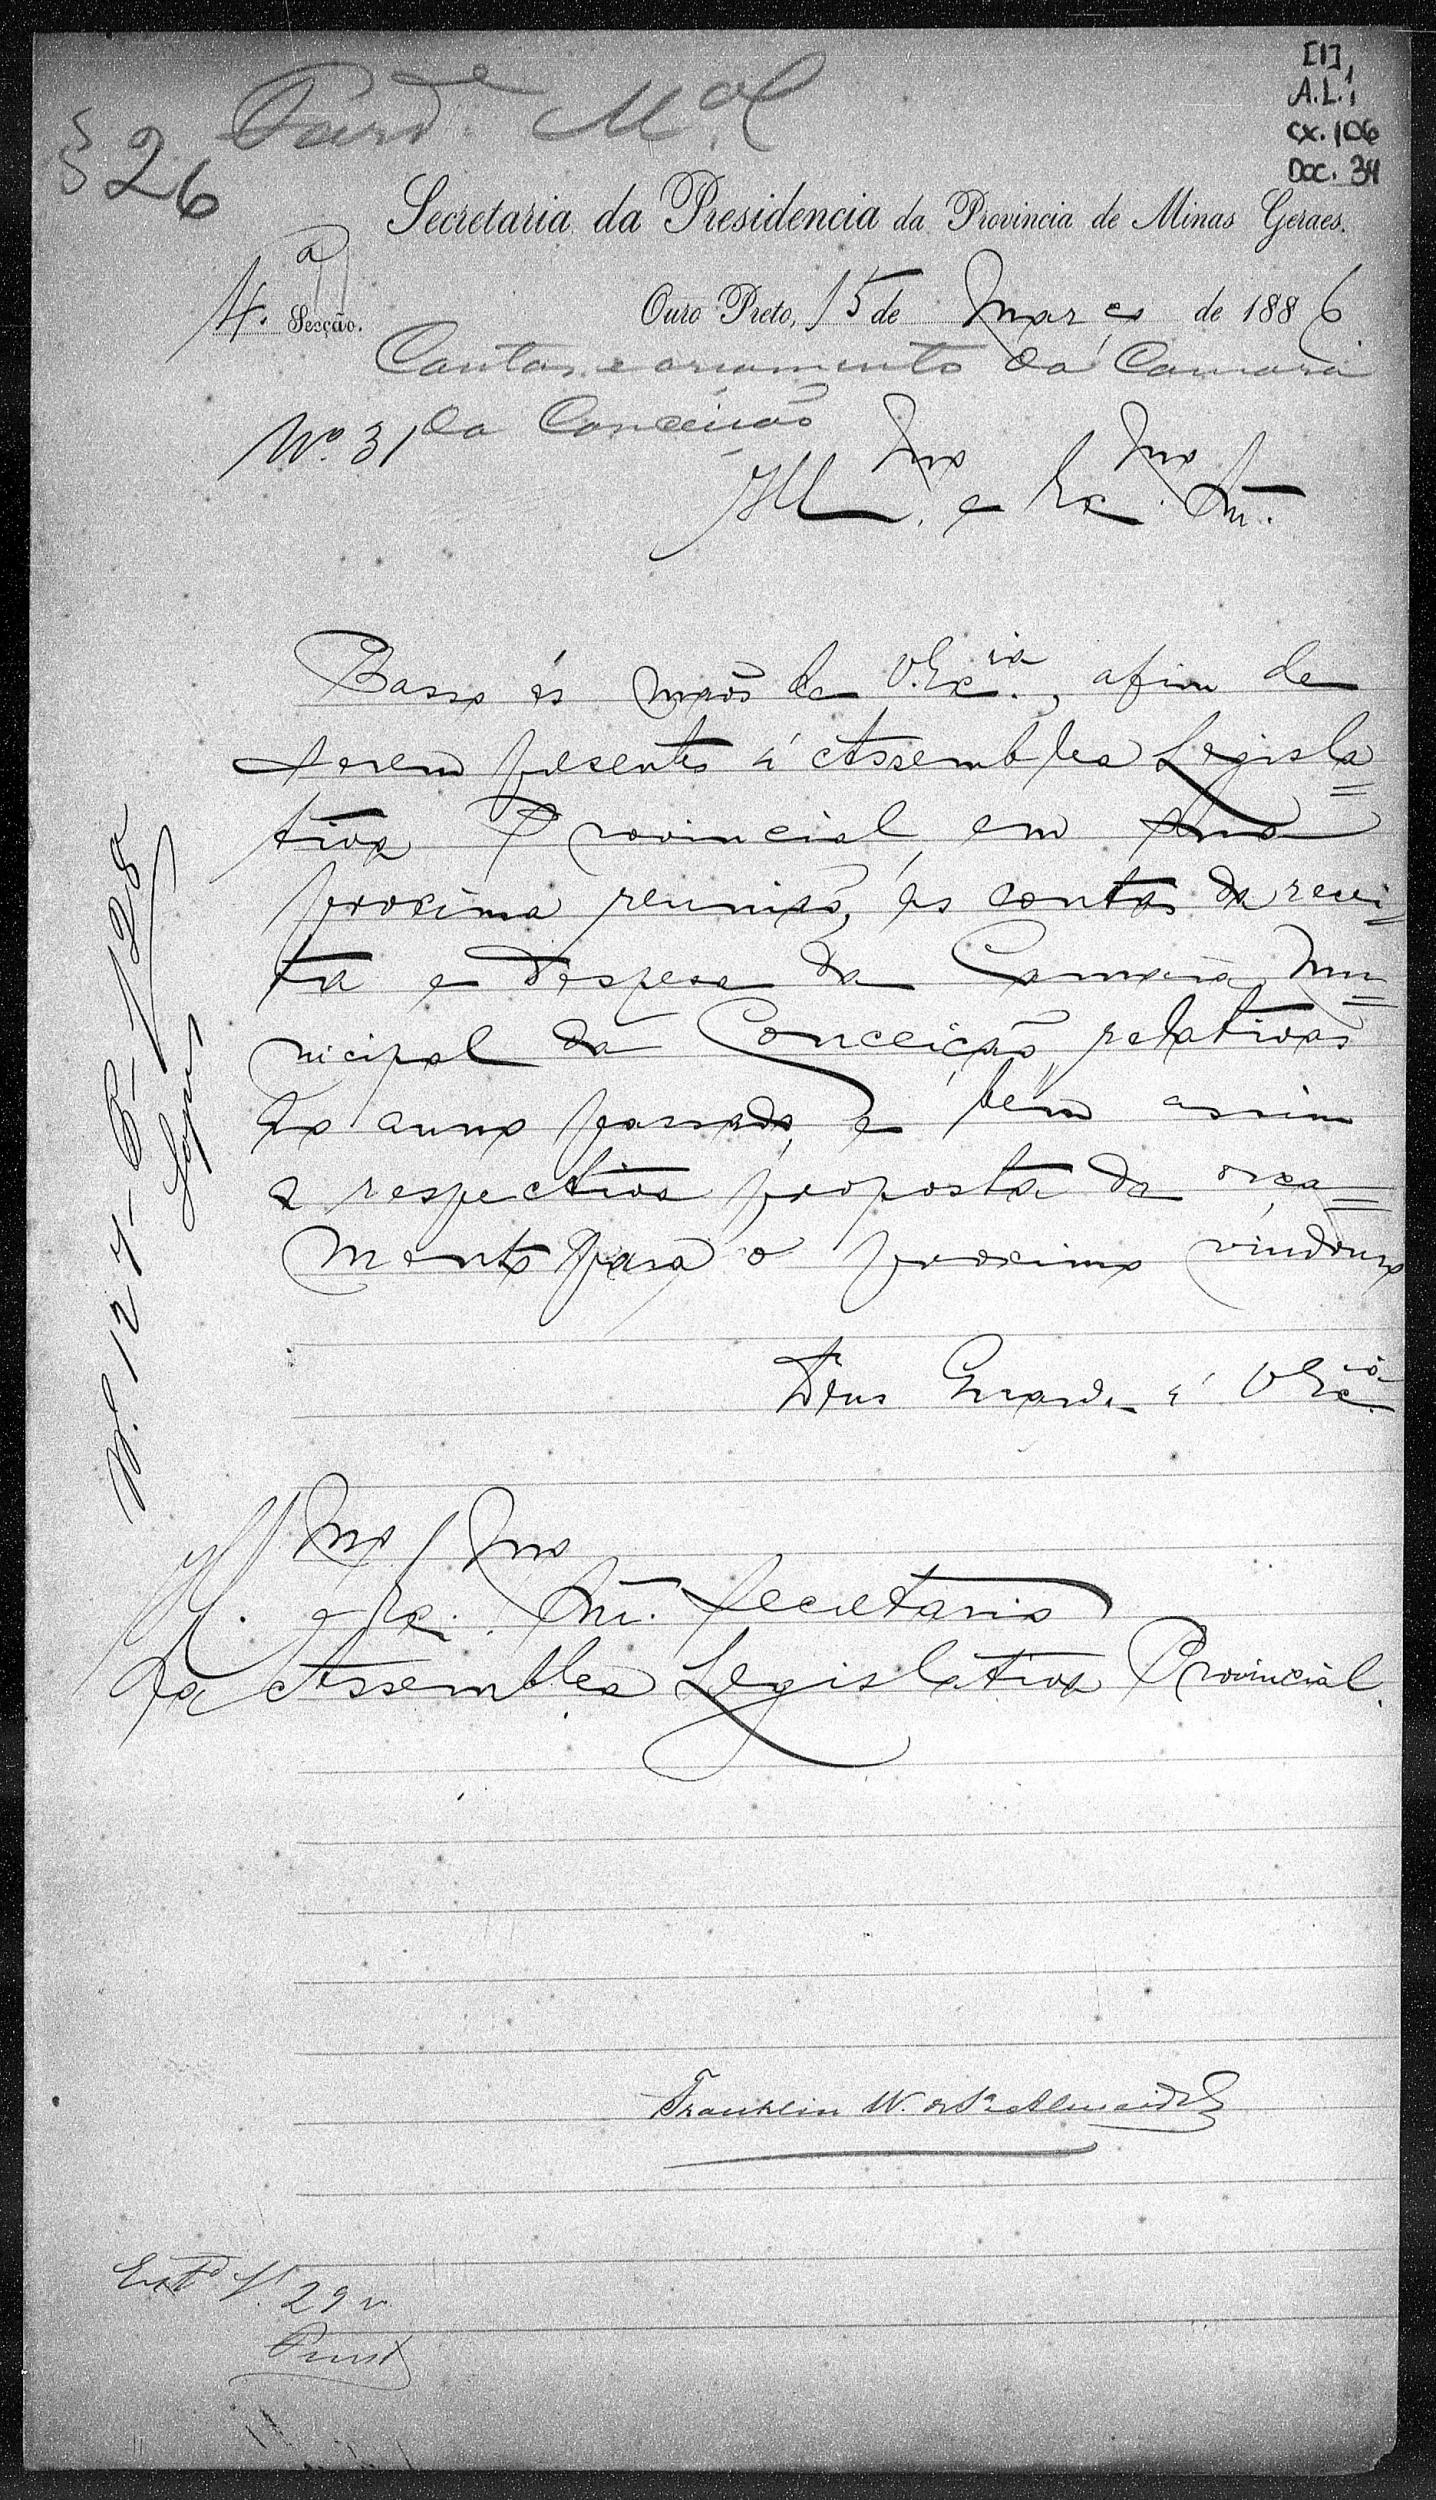 [1]
A.L.1
cx. 106
Doc. 34
§ 26
Mal
Secretaria da Presidencia da Provincia de Minas Geraes.
4.a Secção.
Ouro Preto, 15 de Março de 1886
Contas e orçamento da Camara
da Conceição
No. 31
Illmo. e Exmo. Snr.
Passo ás mãos de V. Excia., afim de
serem presentes á Assemblea Legisla=
tiva Provincial, em sua
proxima reunião, as contas da recei=
ta e despesa da Camara Mu=
nicipal da Conceição, relativas
ao anno passado, e bem assim
a respectiva proposta de orça=
mento para o proximo vindouro
Deus Guarde á V Excia.
Illmo. e Exmo. Snr. Secretario
da Assemblea Legislativa Provincial.
Franklin W. de Sa Almeida
29 v.